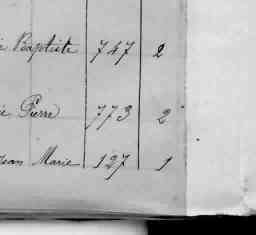 Baptiste 747 2
Pierre 773 2
Jean Marie 127 1